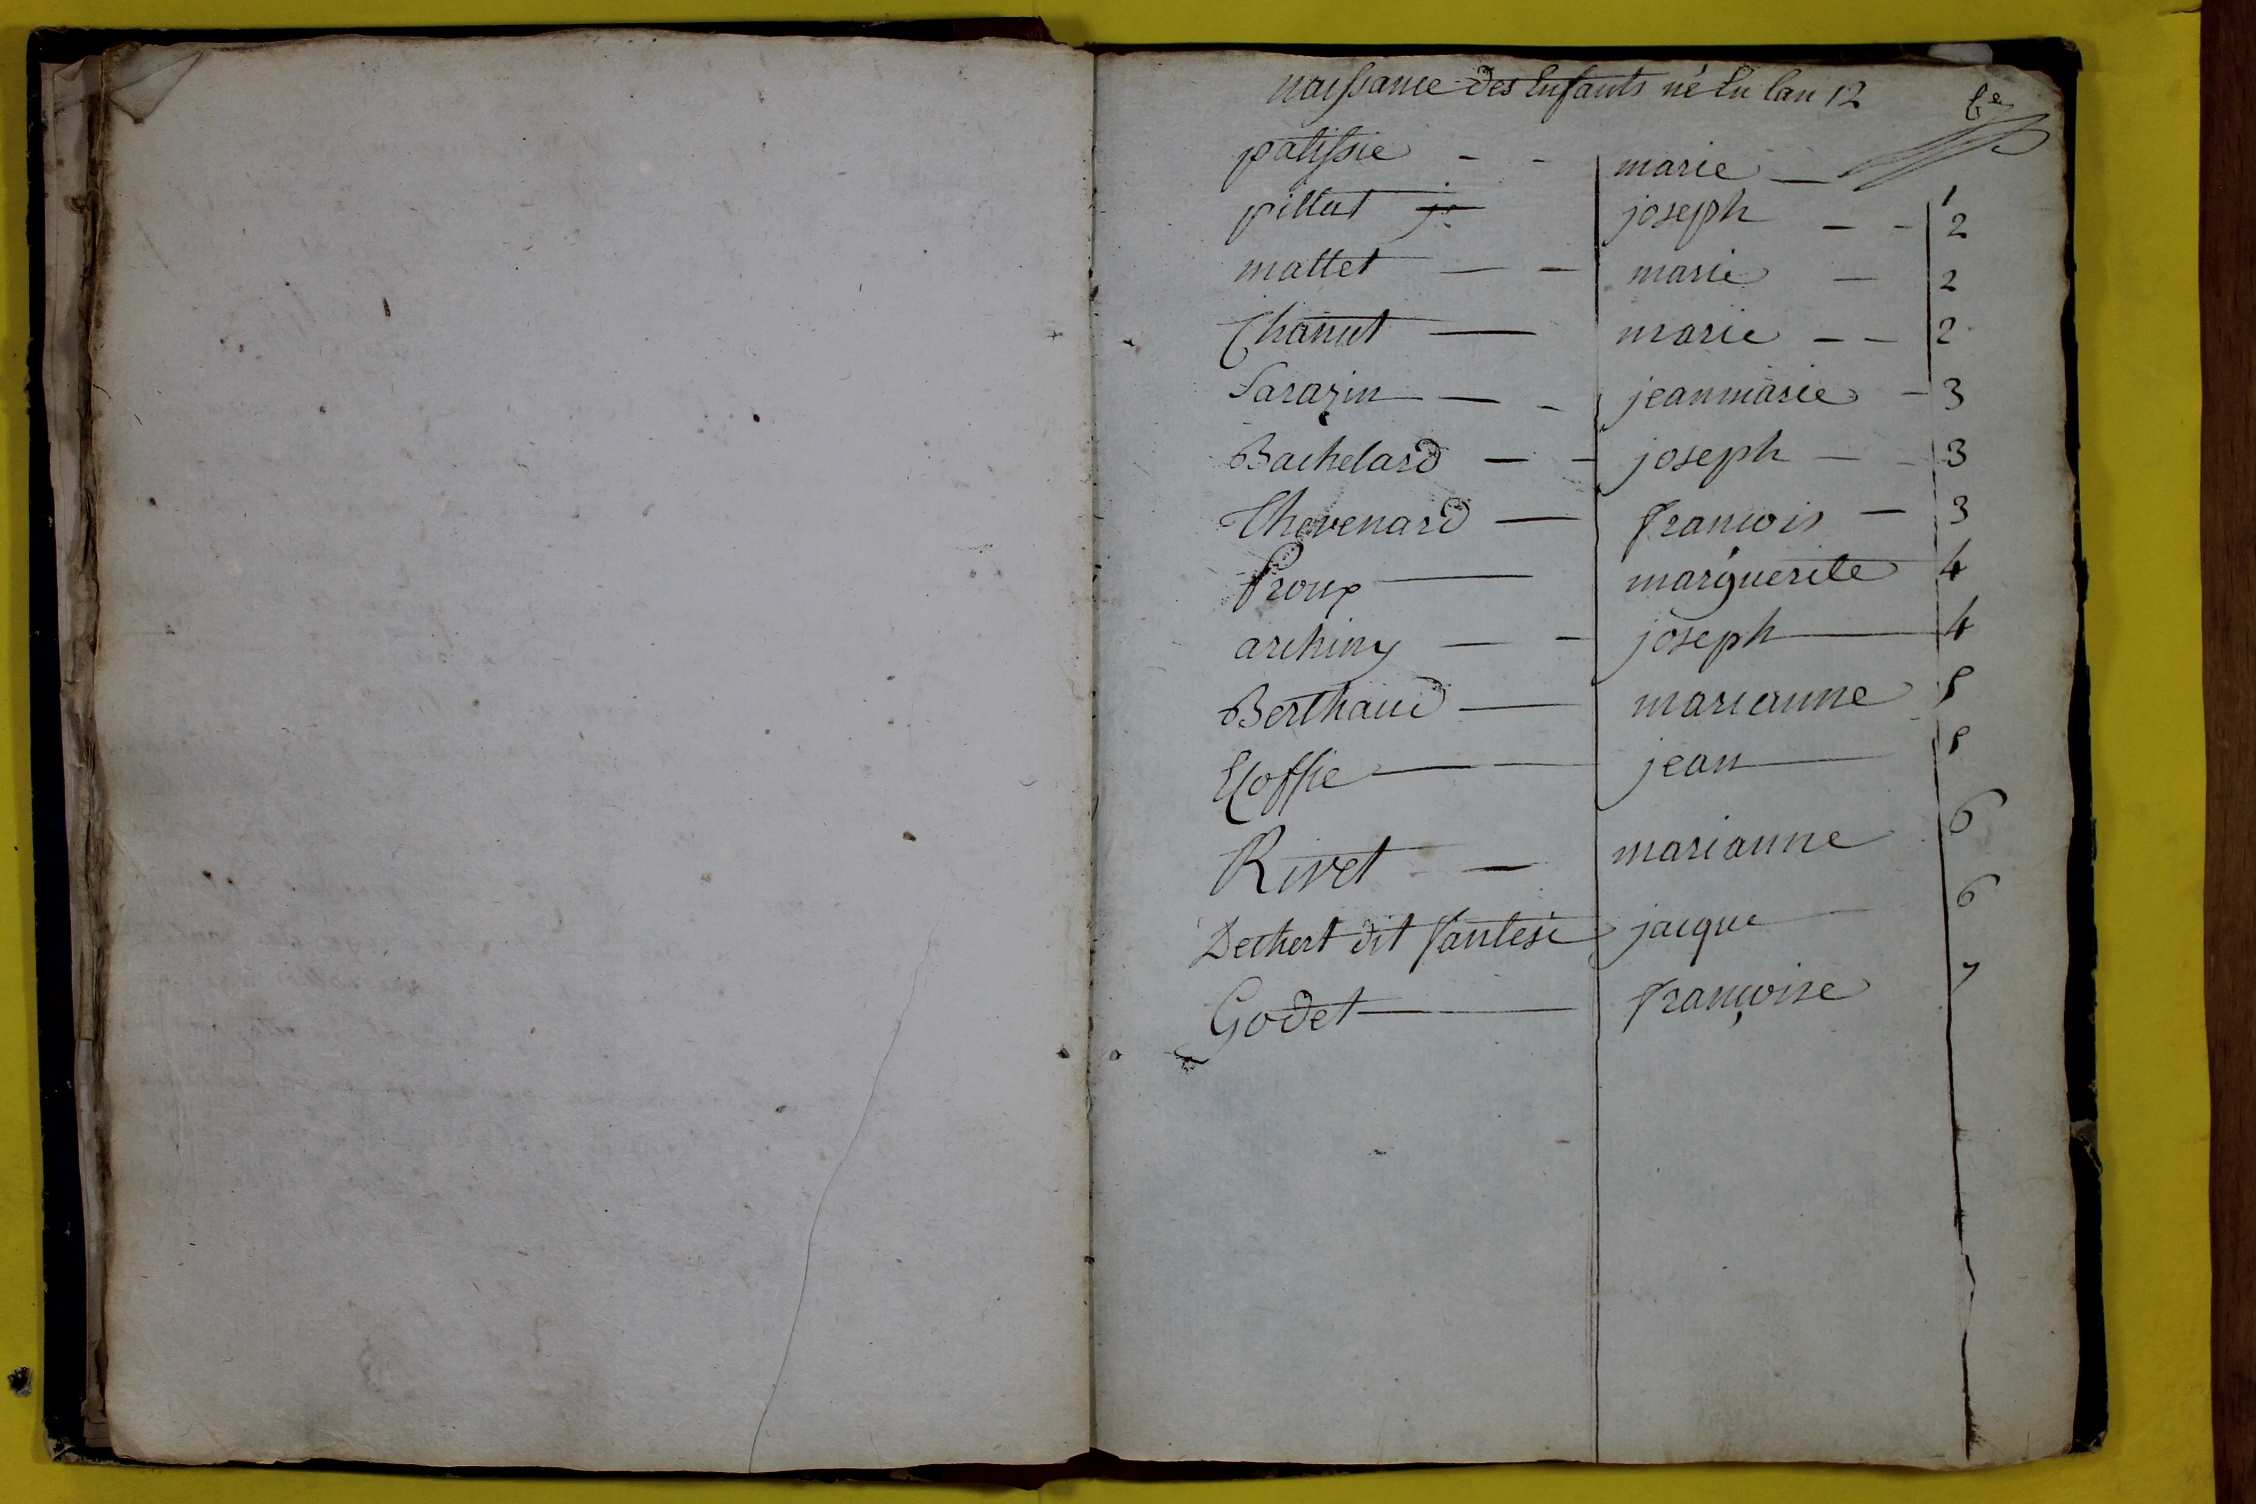 naissance des Enfants né En lan 12
patissie - - marie -
pillut joseph - - 2
mattet - - marie - 2
Chanut - marie - - 2
Sarazin - - jeanmarie - 3
Bachelard - - joseph - - 3
Thevenard - francois - 3
Proux - marguerite 4
archiny - - joseph - 4
Berthaud - marianne 5
Ecoffie - - jean - 5
Rivet - marianne 6
Dechert dit fantesie jacque 6
Godet - françoise 7